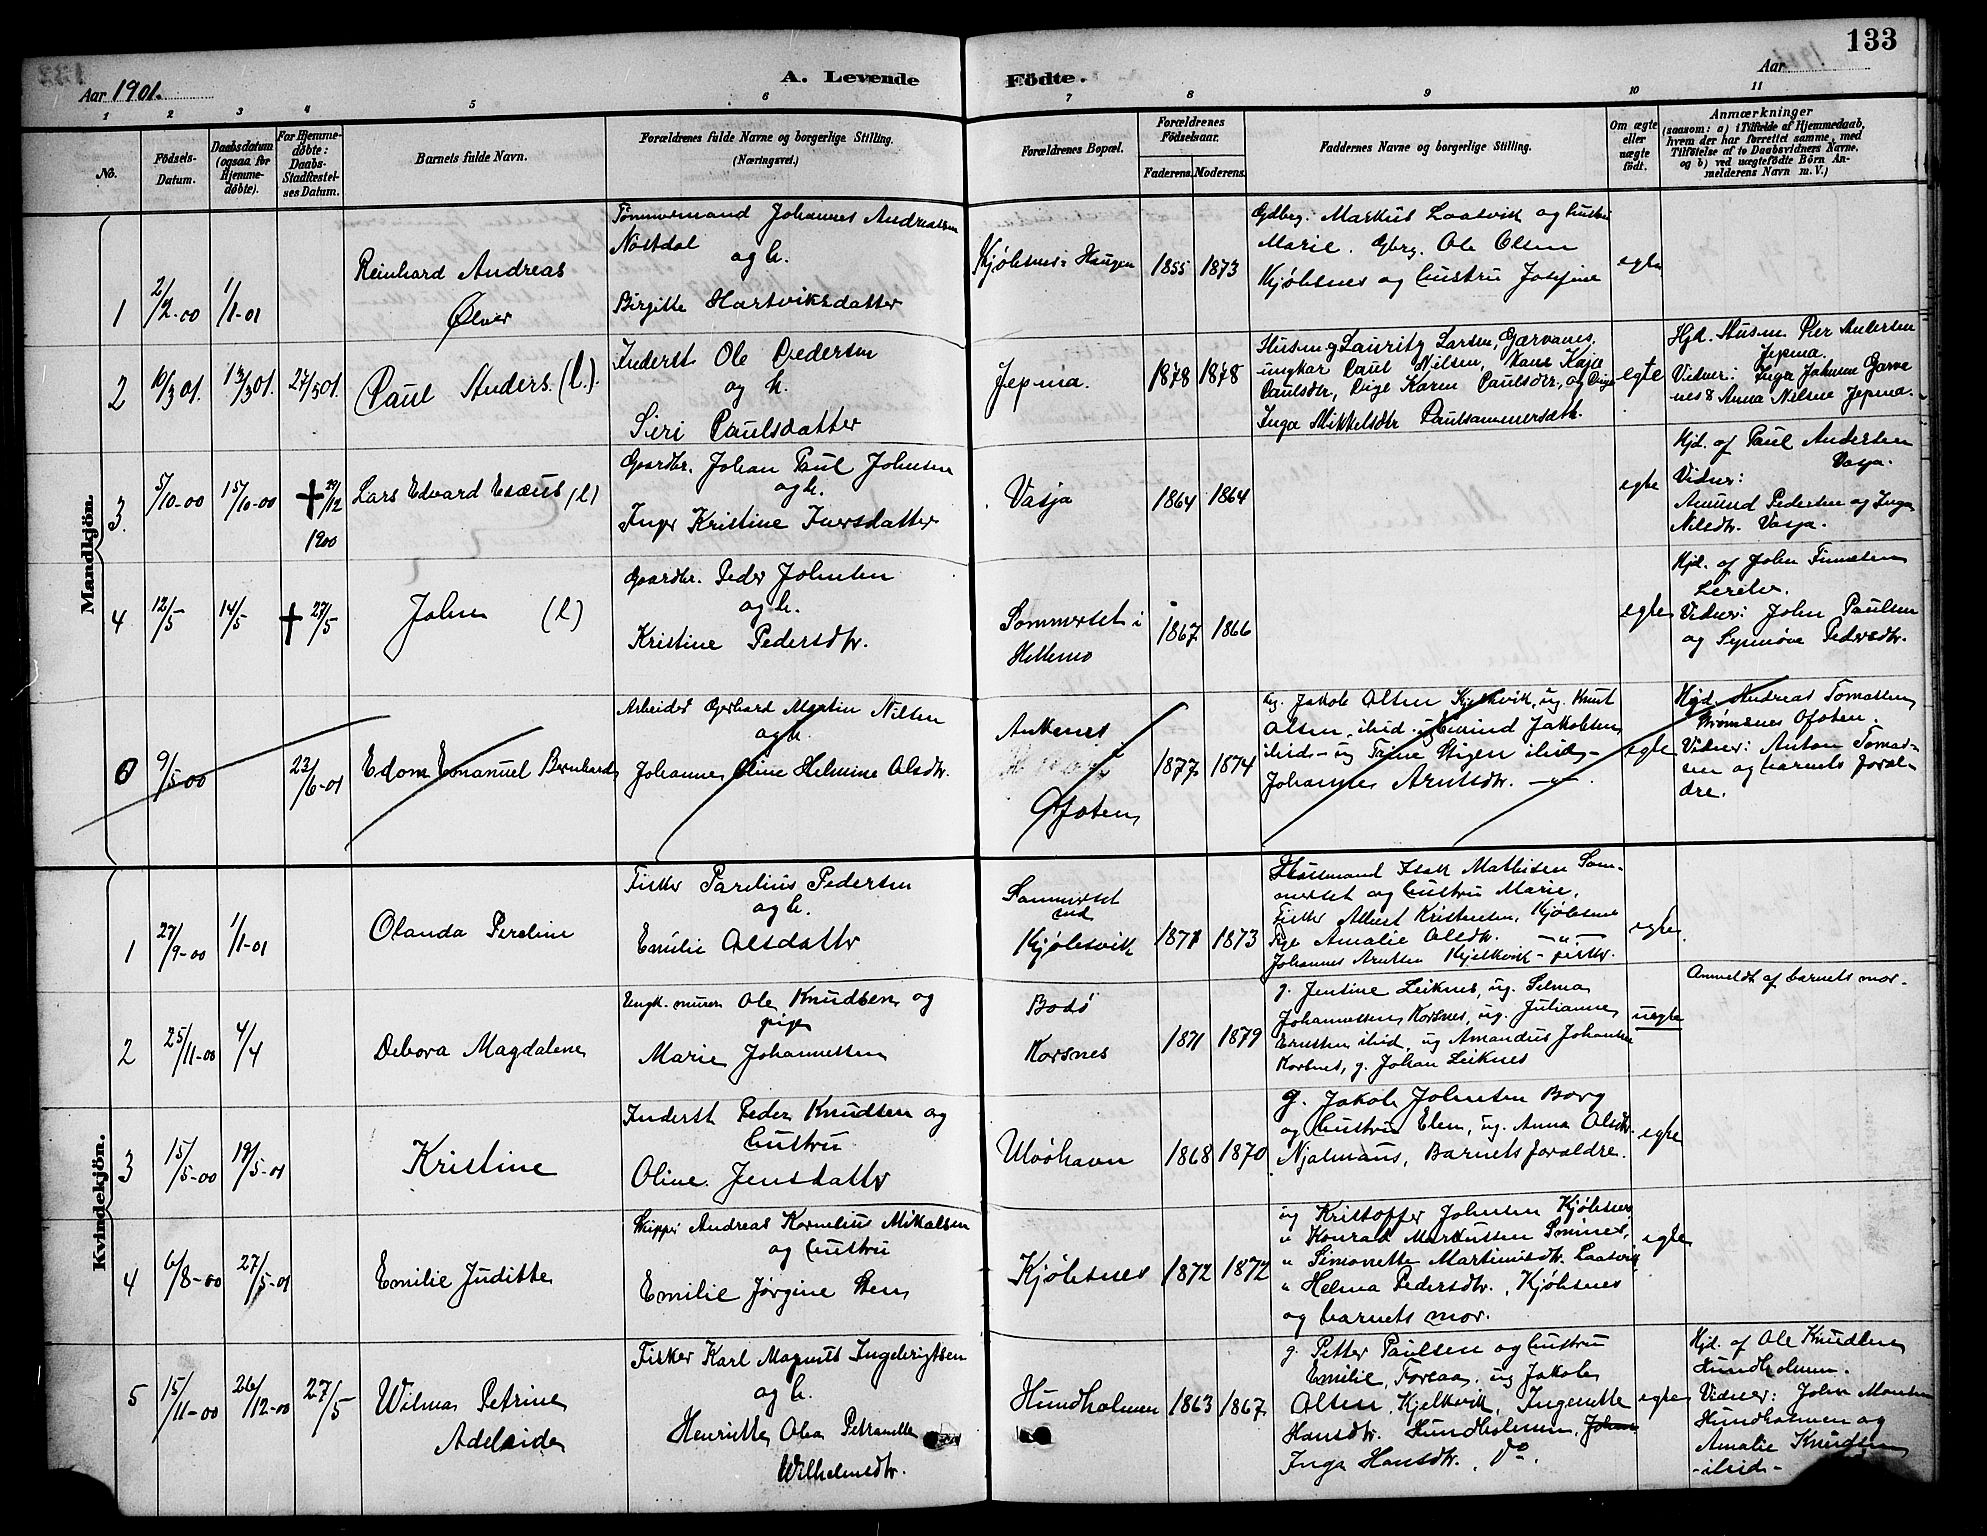 133
Aar 1901.
A. Levende Födte.
Aar
1 2 3 4 5 6 7 8 9 10 11
No.
Födsels-
Datum.
Daabsdatum
(ogsaa for
Hjemme-
döbte).
For Hjemme-
döbte:
Daabs-
Stadfæstel-
ses Datum.
Barnets fulde Navn.
Forældrenes fulde Navne og borgerlige Stilling.
(Næringsvei.)
Forældrenes Bopæl.
Forældrenes
Födselsaar.
Faderens. Moderens.
Faddernes Navne og borgerlige Stilling.
Om ægte
eller
uægte
födt.
Anmærkninger
(saasom: a) i Tilfælde af Hjemmedaab,
hvem der har forrettet samme, med
Tilföielse af to Daabsvidners Navne,
og b) ved uægtefödte Börn An-
melderens Navn m. V.)
Mandkjön.
1
2/2-00
1/1-01
Reinhard Andreas
Ølver
Tømmermand Johannes Andreassen
Nostdal
og h.
Birgitte Hartviksdatter
Kjøbsnes Haugen
1855 1873
Gdbrg. Markus Laatvik og hustru
Marie. Gbrg. Ole Olsen
Kjøbsnes og hustru Josefine
egte
2
10/3 01.
13/3 01.
27/5 01.
Paul Anders. (l.)
Inderst Ole Pedersen
og h.
Siri Paulsdatter
Jepma.
1878 1878
Husm. Lauritz Larsen, Garvanes,
ungkar Paul Nilsen, Kaja
Paulsdtr, Pige Karen Paulsdtr, og Pige
Inga Mikkelsdtr
egte
Hjd. Husm Per Andersen
Jepma.
Vidner: Inga Johnsen Garve
nes & Anna Nilsen Jepma.
3.
5/10-00
15/10-00
† 29/12
1900
Lars Edvard Esæus (l)
Gaardbr. Johan Paul Johnsen
og h.
Inger Kristine Iversdatter
Vasja
1864 1864
egte
Hjd. af Paul Andersen
Vasja.
Vidner:
Amund Pedersen og Inga
Nilsdtr. Vasja.
4
12/5
14/5
† 27/5
John (l)
Gaardbr. Peder Johnsen
og h.
Kristine Pedersdtr.
Sommerset i
Hellemo
1867 1866
egte
Hjd. af John Tomesen
Vidner: John Paulsen
og Synnøve Pedersdtr.
9/5-00
23/6-01
Edom Emanuel Bernhard
Arbeider Gerhard Martin Nilsen
og h.
Johanne Oline Helmine Olsdtr.
Ankenes
Ofoten
1877 1874
ug. Jakob Olsen Kjelkvik, ug. Knut
Olsen, ibid. ug Eivind Jakobsen
ibid - ug Trine Stigen ibid -
Johanne Arntsdtr. -„-
egte
Hjd. Andreas Tomassen
Ofoten.
Vidner: Anton Tomas-
sen og barnets foræl-
dre.
Kvindekjön.
1
27/9-00
1/1-01
Olanda Pereline
Fisker Parelius Pedersen
og h.
Emilie Olsdatter
Sommerset
ved
Kjøbsvik
1871 1873
Husmand Isak Mathisen Som-
merset og hustru Marie,
Fisker Albert Kristensen, Kjøbsnes
Pige Amalie Olsdtr. -„-
Johannes Arntsen Kjelkvik - fisker.
egte
2
25/11-00
4/4
Debora Magdalene
Ungk. murer Ole Knudsen og
pige
Marie Johannessen
Bodö
Korsnes
1871 1879
g. Jentine Leiknes, ug. Selma
Johannessen, Korsnes, ug. Julianne
Erntsen ibid, ug Amandus Johansen
Korsnes, g. Johan Leiknes
uegte
Anmeldt af barnets mor.
3
15/5-00
19/5-01
Kristine
Inderst Peder Knudsen og
hustru
Oline Jensdatter
Uløhavn
1868 1870
g. Jakob Johnsen Borg
og hustru Elen, ug. Anna Olsdtr.
Njalmaus, Barnets forældre.
egte
4
6/8-00
27/5-01
Emilie Juditte
Skipper Andreas Kornelius Mikalsen
og hustru
Emilie Jørgine Sten
Kjøbsnes
1872 1872
ug Kristoffer Johnsen Kjøbsnes
„ Konrad Markussen
„ Simonette Martinusdtr. Laatvik
„ Helma Pedersdtr., Kjøbsnes
og barnets mor.
egte
5
15/11-00
26/12-00
27/5
Wilma Petrine
Adelaide
Fisker Karl Magnus Ingebrigtsen
og h.
Henriette Olea Petranelle
Wilhelmsdtr.
Hundholmen
1863 1867
g. Petter Paulsen og hustru
Emilie, Foreaa. ug Jakob
Olsen, Kjelkvik, Ingenette
Hansdtr. Hundholmen, Johan
Inga Hansdtr. Do.
egte
Hjd. af Ole Knudsen
Hundholmen.
Vidner: John Monsen
Hundholmen og
Amalie Knudsen
-ibid-